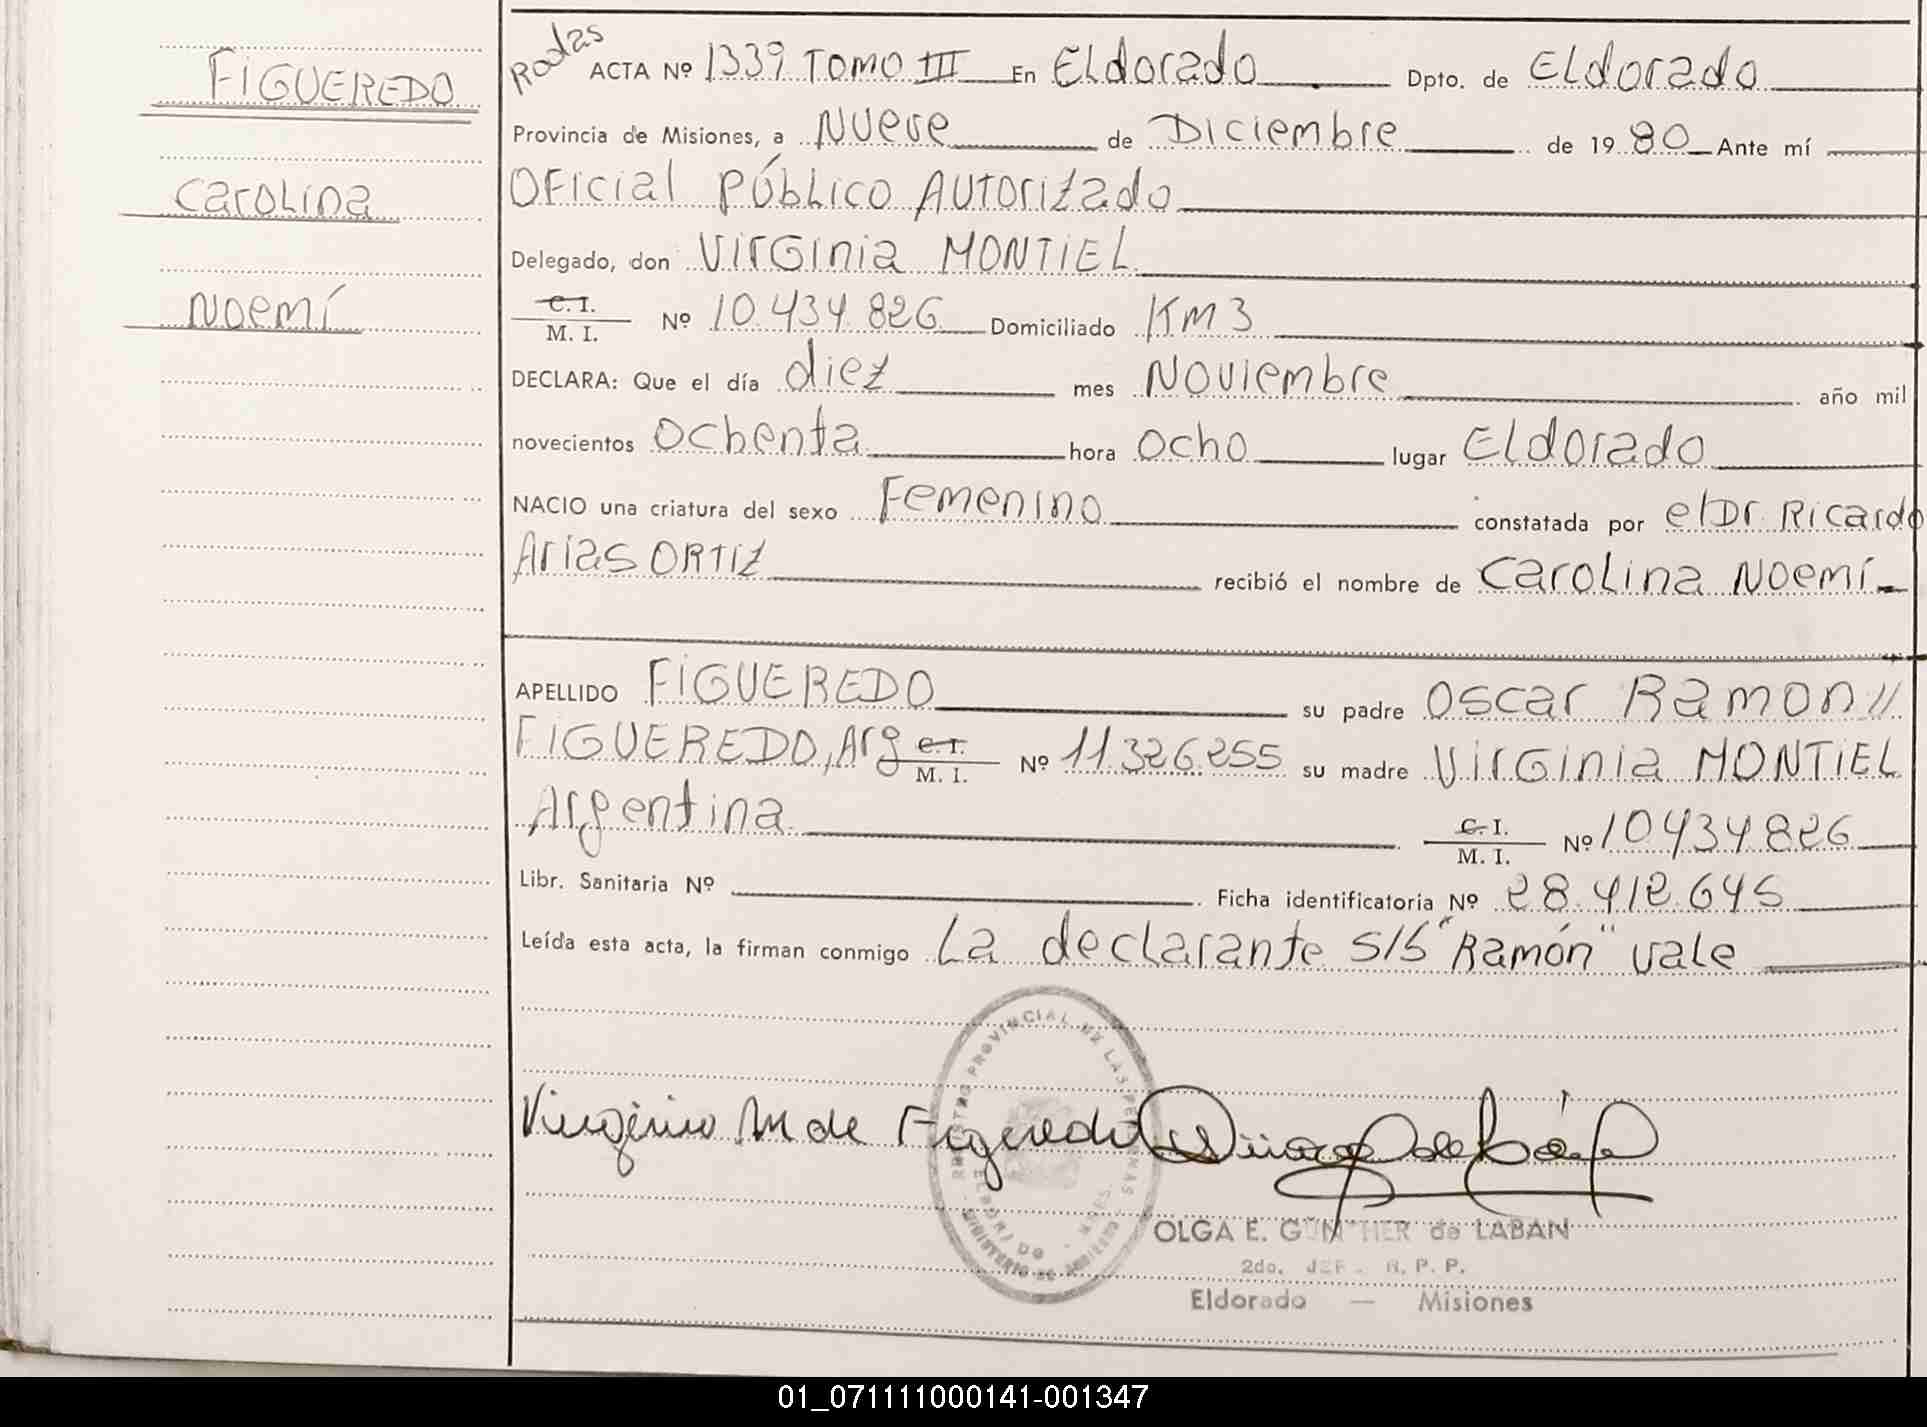 FIGUEREDO
Carolina
Noemí
Rodas
ACTA Nº 1339 TOMO III En ELdorado Dpto. de ELdorado
Provincia de Misiones, a Nueve de Diciembre de 1980 Ante mí
OFicial Público Autorizado
Delegado, don Virginia MONTIEL
C. I. / M. I. Nº 10.434.826 Domiciliado Km 3
DECLARA: Que el día diez mes Noviembre año mil
novecientos ochenta hora ocho lugar ELdorado
NACIO una criatura del sexo Femenino constatada por el Dr Ricardo
Arias ORTIZ recibió el nombre de Carolina Noemí
APELLIDO FIGUEREDO su padre Oscar Ramon //
FIGUEREDO, Arg C. I. / M. I. Nº 11.326.255 su madre Virginia MONTIEL
Argentina C. I. / M. I. Nº 10434826
Libr. Sanitaria Nº Ficha identificatoria Nº 28.412.645
Leída esta acta, la firman conmigo La declarante S/S "Ramón" vale
Virginia M de Figueredo
REGISTRO PROVINCIAL DE LAS PERSONAS
ELDORADO
OLGA E. GÜNTHER de LABAN
2do. JEFE R. P. P.
Eldorado — Misiones
01_071111000141-001347